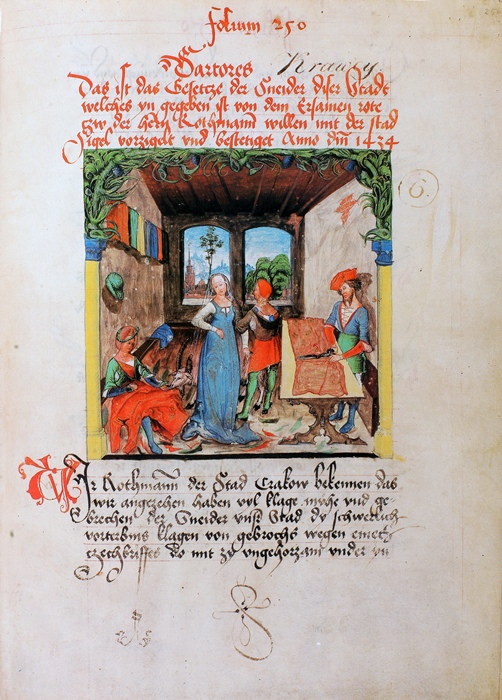 folium 250
Sartores Krawcy
Das ist das Gesetze der Sneider diser Stadt
welches yn gegeben ist von dem Ersamen rote
czw der hern Rothmann willen mit der stad
Sigel vorzigelt vnd bestetiget Anno dm̄ 1434
6.
Wir Rothmann̄ der Stad Crakow bekennen das
wir angezehen haben vyl klage mӱhe vnd ge-
brechen der Sneider vnsr̄ Stad dy schwerlich
vorterbnis klagen von gebrochs wegen eines
do mit zu vngehorzam vnder yn